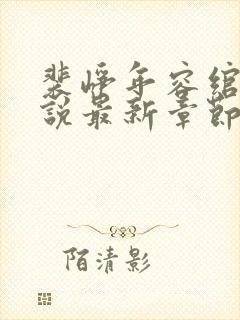 裴恃年容绾
說最新章節
陌清影